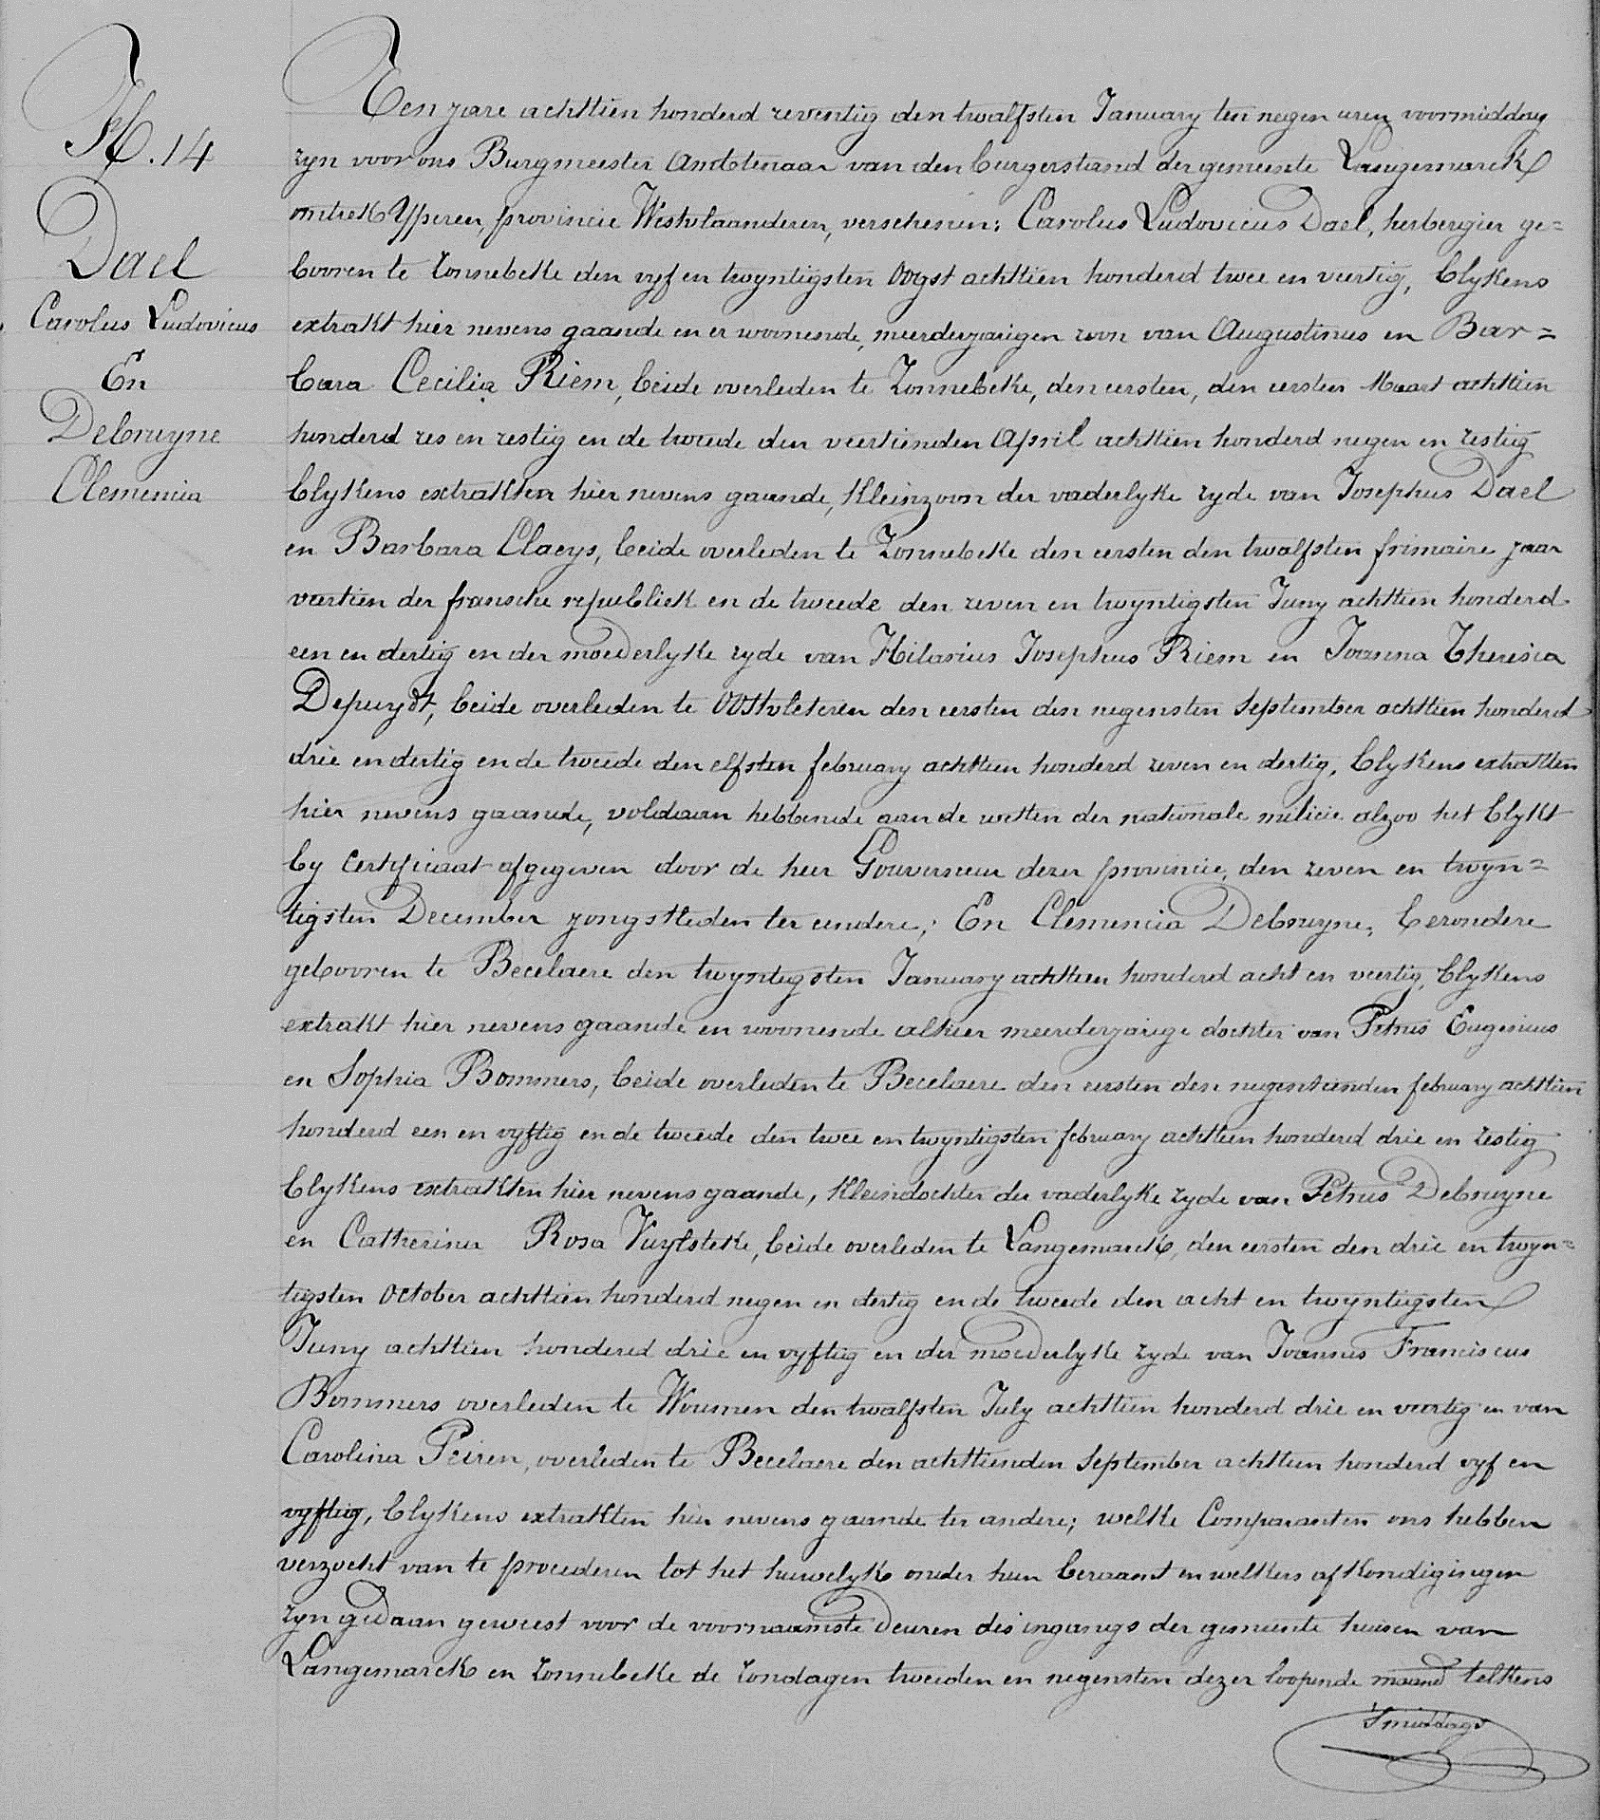 N. 14
Dael
Carolus Ludovicus
En
Debruyne
Clemencia
Ten jare achttien honderd zeventig den twalfsten January ten negen uren voormiddag
zyn voor ons Burgmeester Ambtenaar van den burgerstand der gemeente Langemarck
omtrek Yperen, provincie Westvlaanderen, verschenen: Carolus Ludovicus Dael, herbergier ge=
booren te Zonnebeke den vyf en twyntigsten Oogst achttien honderd twee en veertig, blykens
extrakt hier nevens gaande en er woonende, meerderjarigen zoon van Augustinus en Bar=
bara Cecilia Riem, beide overleden te Zonnebeke, den eersten, den eersten Maart achttien
honderd zes en zestig en de tweede den veertienden April achttien honderd negen en zestig
blykens extrakten hier nevens gaande, kleinzoon der vaderlyke zyde van Josephus Dael
en Barbara Claeys, beide overleden te Zonnebeke den eersten den twalfsten frimaire jaar
veertien der fransche republiek en de tweede den zeven en twyntigsten Juny achttien honderd
een en dertig en der moederlyke zyde van Hilarius Josephus Riem en Joanna Theresia
Depuydt, beide overleden te Oostvleteren den eersten den negensten September achttien honderd
drie en dertig en de tweede den elfsten february achttien honderd zeven en dertig, blykens extrakten
hier nevens gaande, voldaan hebbende aan de wetten der nationale milicie alzoo het blykt
by Certificaat afgegeven door de heer Gouverneur dezer provincie, den zeven en twyn=
tigsten December jongstleden ter eendere; En Clemencia Debruyne, bezondere
gebooren te Becelaere den twyntigsten January achttien honderd acht en veertig, blykens
extrakt hier nevens gaande en woonende alhier meerderjarige dochter van Petrus Eugenius
en Sophia Bommers, beide overleden te Becelaere den eersten den negentienden february achttien
honderd een en vyftig en de tweede den twee en twyntigsten february achttien honderd drie en zestig
blykens extrakten hier nevens gaande, kleindochter der vaderlyke zyde van Petrus Debruyne
en Catherina Rosa Vuylsteke, beide overleden te Langemarck, den eersten den drie en twyn=
tigsten October achttien honderd negen en dertig en de tweede den acht en twyntigsten
Juny achttien honderd drie en vyftig en der moederlyke zyde van Joannes Franciscus
Bommers overleden te Woumen den twalfsten July achttien honderd drie en veertig en van
Carolina Peiren, overleden te Becelaere den achttienden September achttien honderd vyf en
vyftig, blykens extrakten hier nevens gaande ter andere; welke Comparanten ons hebben
verzocht van te procederen tot het huwelyk onder hun beraamt en welkers afkondigingen
zyn gedaan geweest voor de voornaamste deuren des ingangs der gemeente huisen van
Langemarck en Zonnebeke de Zondagen tweeden en negensten dezer loopende maand telkens
s'middags